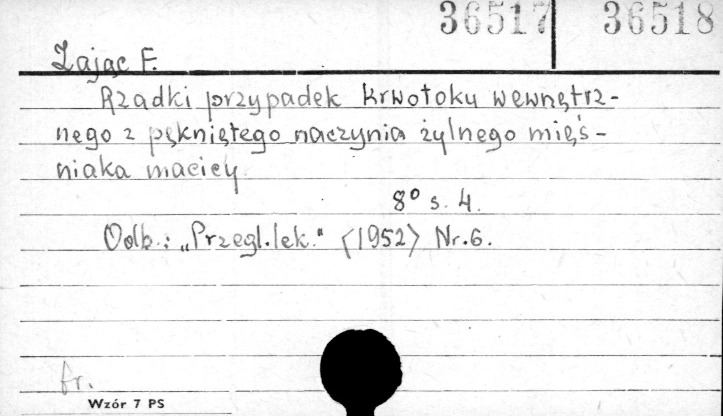 36517 36518
Zając F.
Rzadki przypadek krwotoku wewnętrz-
nego z pękniętego naczynia żylnego mięś-
niaka macicy
8° s. 4.
Odb.: „Przegl.lek." <1952> Nr.6.
fr.
Wzór 7 PS